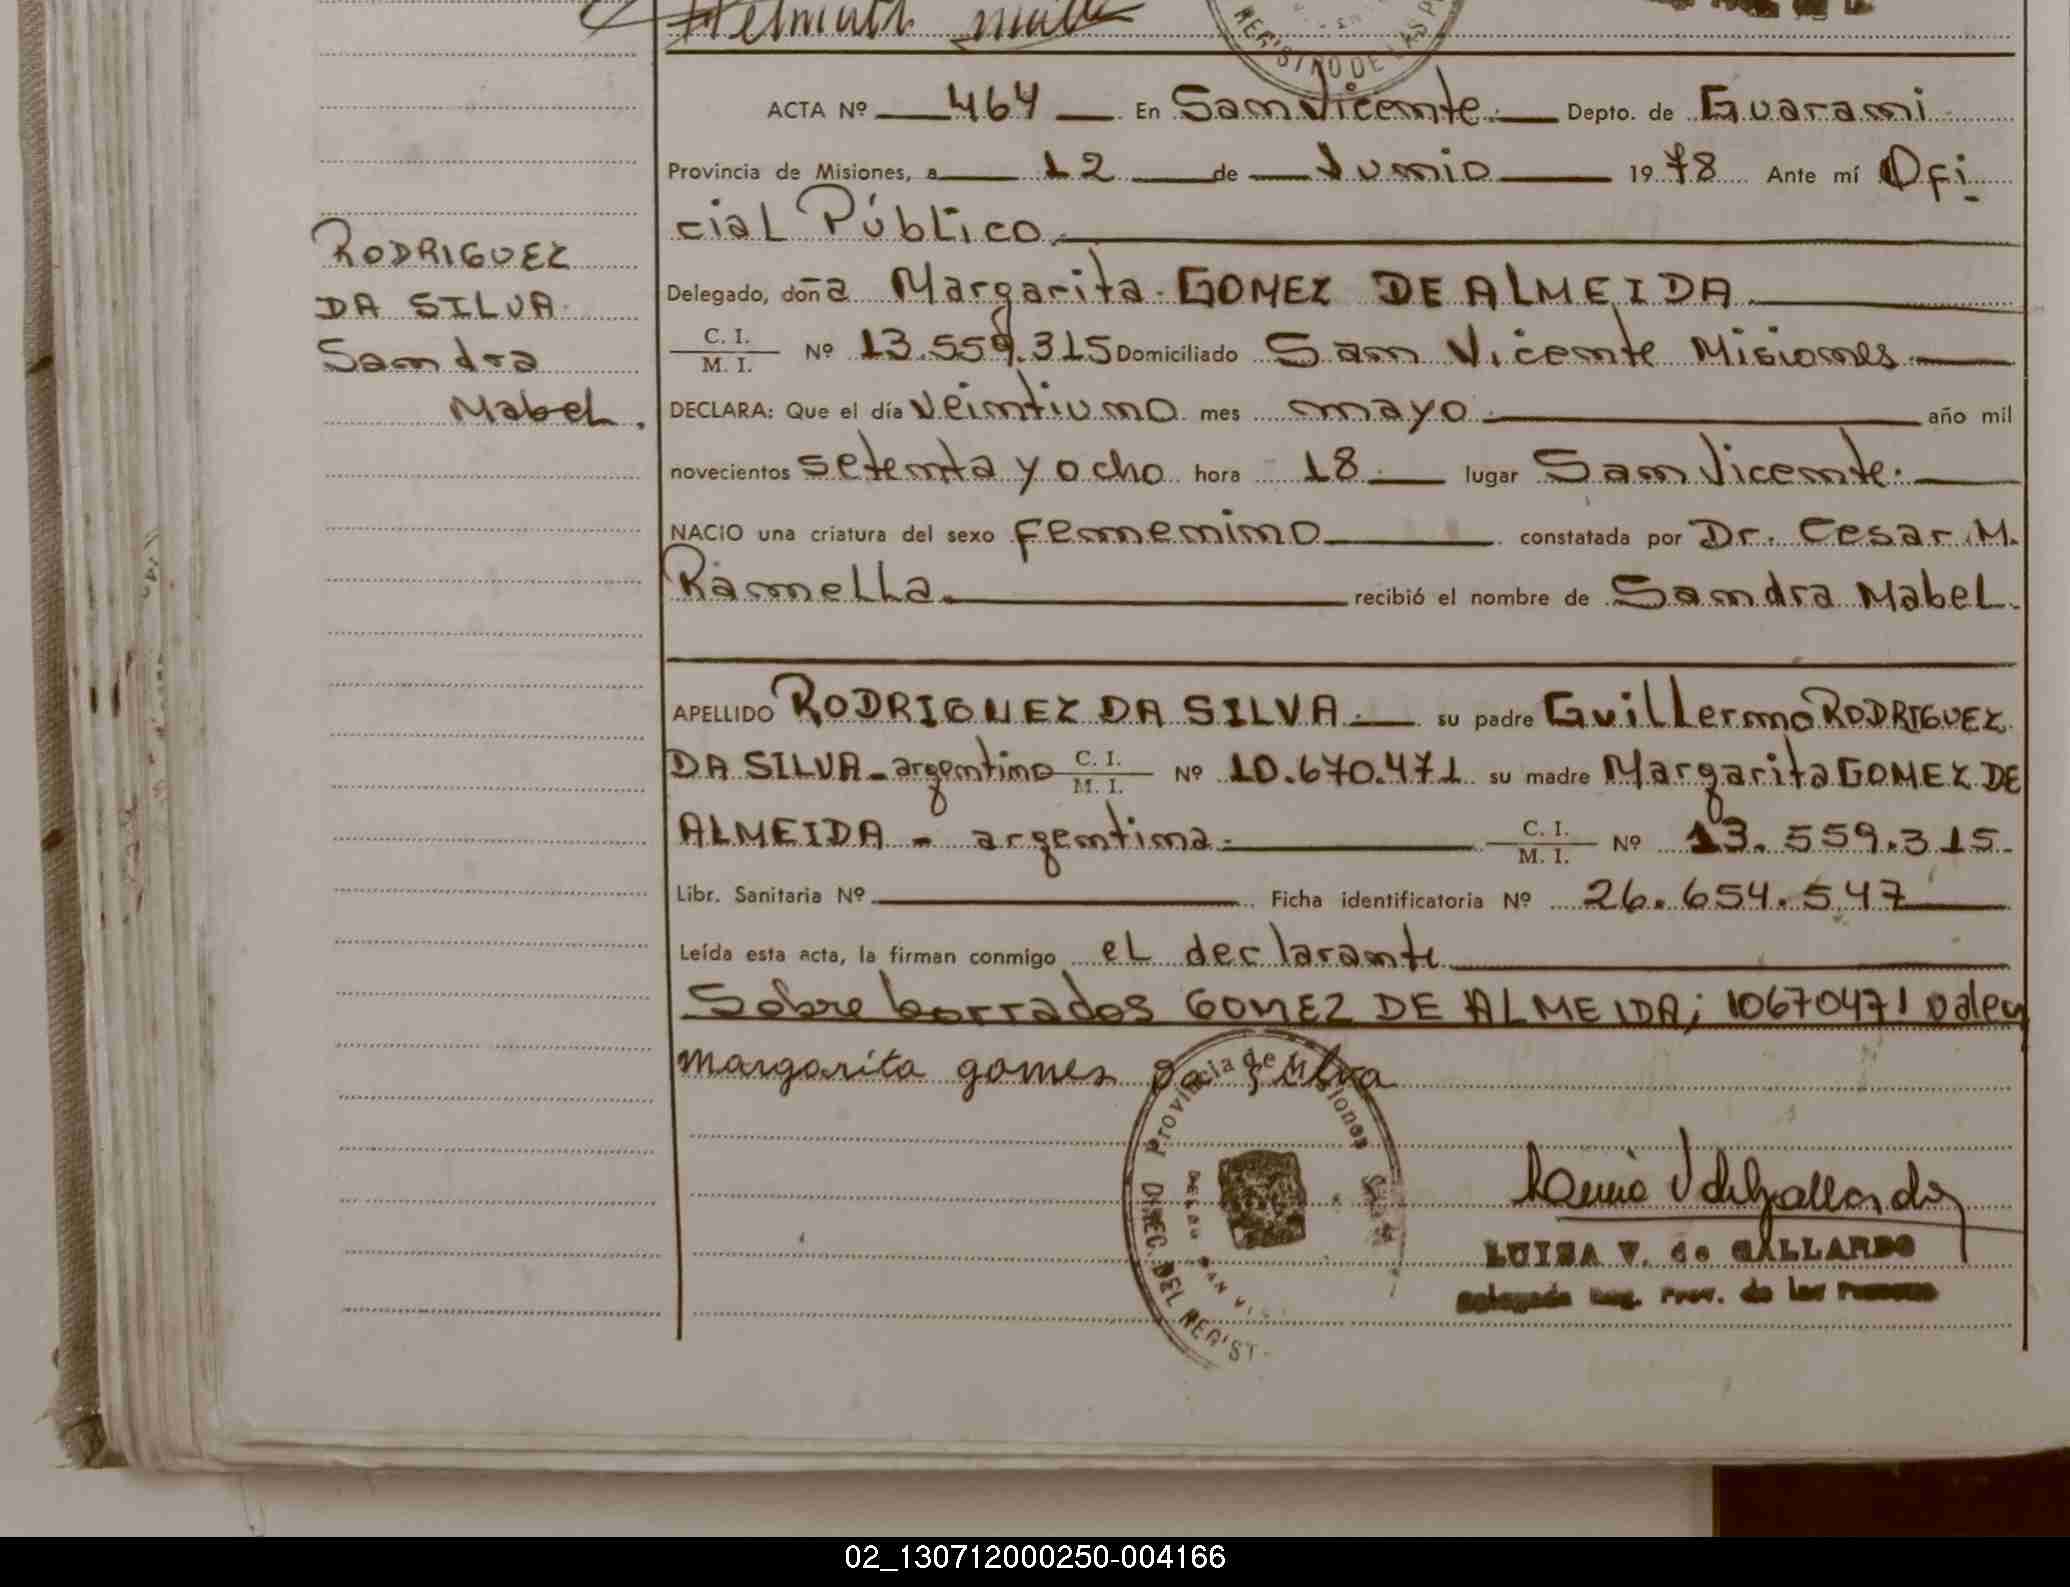 Helmuth
REGISTRO DE LAS P
ACTA Nº 464 En San Vicente. Depto. de Guarani
Provincia de Misiones, a 12 de Junio 1978 Ante mí Ofi
cial Público.
RODRIGUEZ
DA SILVA
Sandra
Mabel.
Delegado, doña Margarita GOMEZ DE ALMEIDA
C. I.
M. I. Nº 13.559.315 Domiciliado San Vicente Misiones.
DECLARA: Que el día veintiuno mes mayo año mil
novecientos setenta y ocho hora 18 lugar San Vicente.
NACIO una criatura del sexo femenino constatada por Dr. Cesar M.
Ramella recibió el nombre de Sandra Mabel.
APELLIDO RODRIGUEZ DA SILVA. su padre Guillermo RODRIGUEZ
DA SILVA - argentino C. I. M. I. Nº 10.670.471 su madre Margarita GOMEZ DE
ALMEIDA - argentina. C. I. M. I. Nº 13.559.315.
Libr. Sanitaria Nº Ficha identificatoria Nº 26.654.547
Leída esta acta, la firman conmigo el declarante
Sobre borrados GOMEZ DE ALMEIDA; 10670471 valen
margarita gomes Da Silva
Provincia de Misiones
DIREC. DEL REGIST.
LUISA V. de GALLARDO
Delegada Reg. Prov. de las Personas
02_130712000250-004166